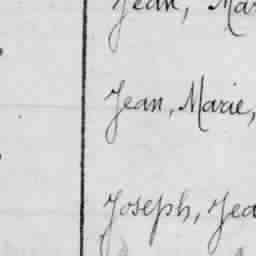 Jean, Mar
Jean, Marie,
Joseph, Jea